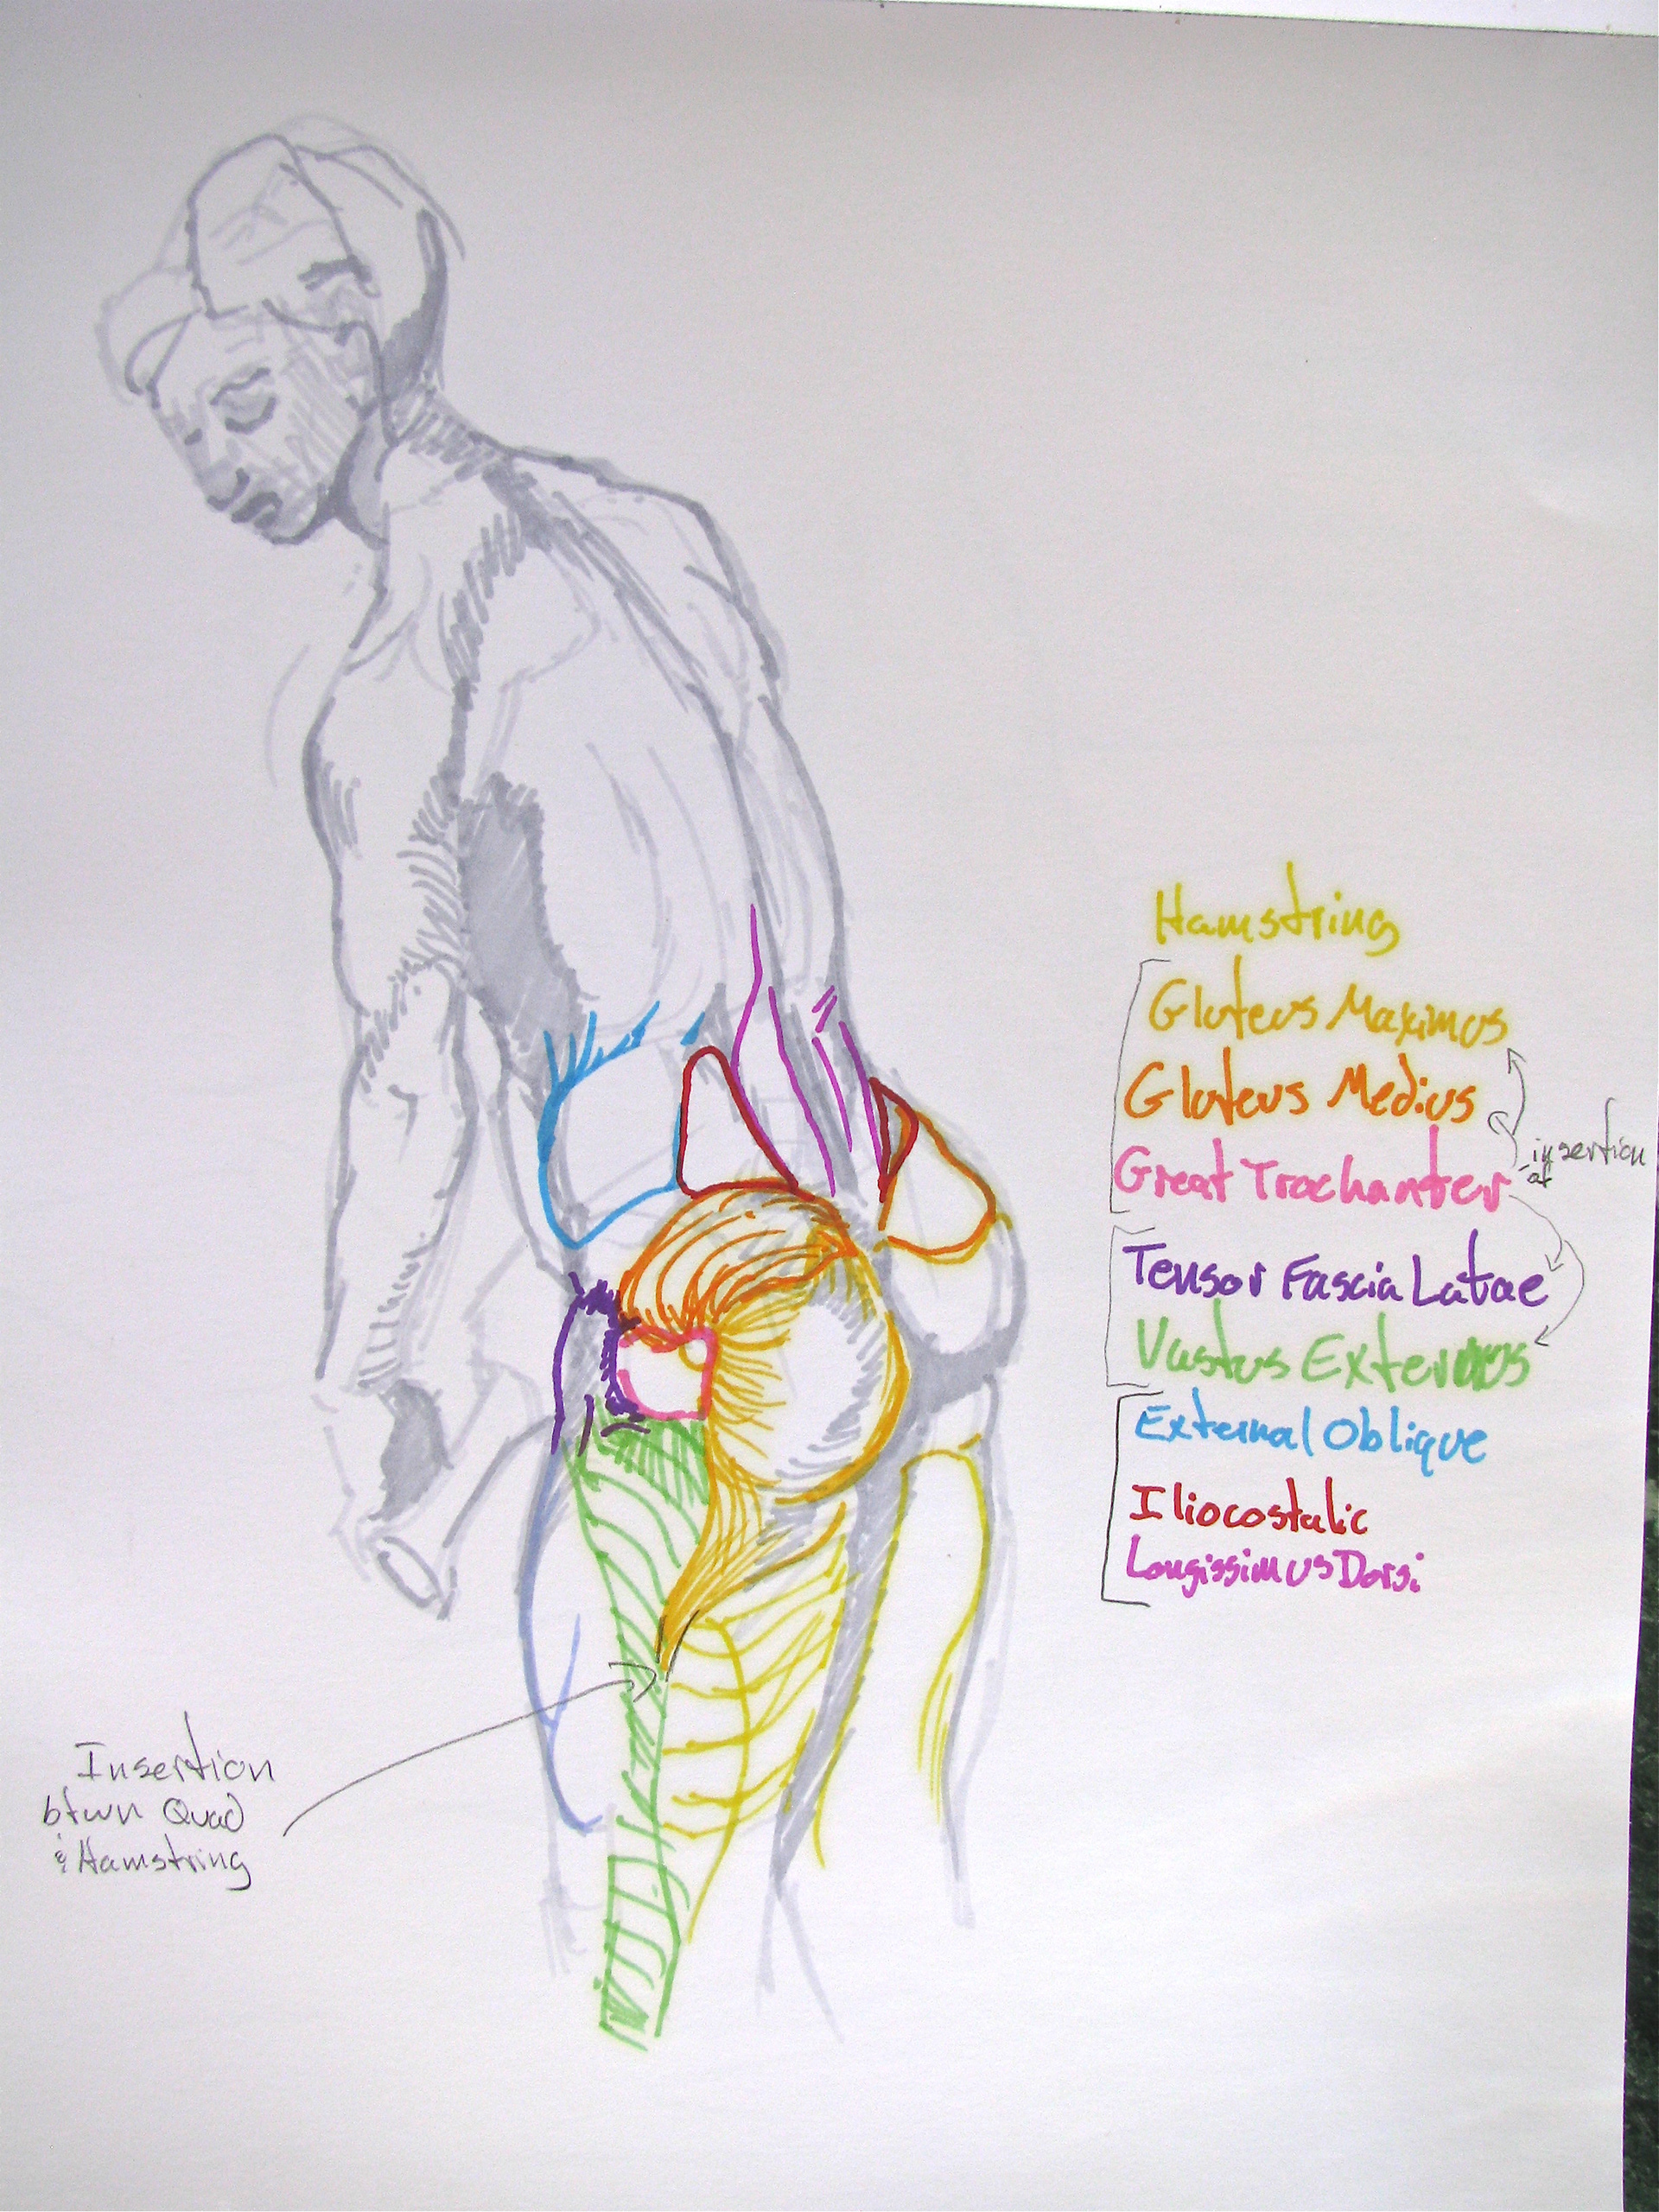 Hamstring
Gluteus Maximus
Gluteus Medius
Great Trochanter
insertion
at
Tensor Fascia Latae
Vastus Externus
External Oblique
Iliocostalic
Longissimus Dorsi
Insertion
btwn Quad
& Hamstring